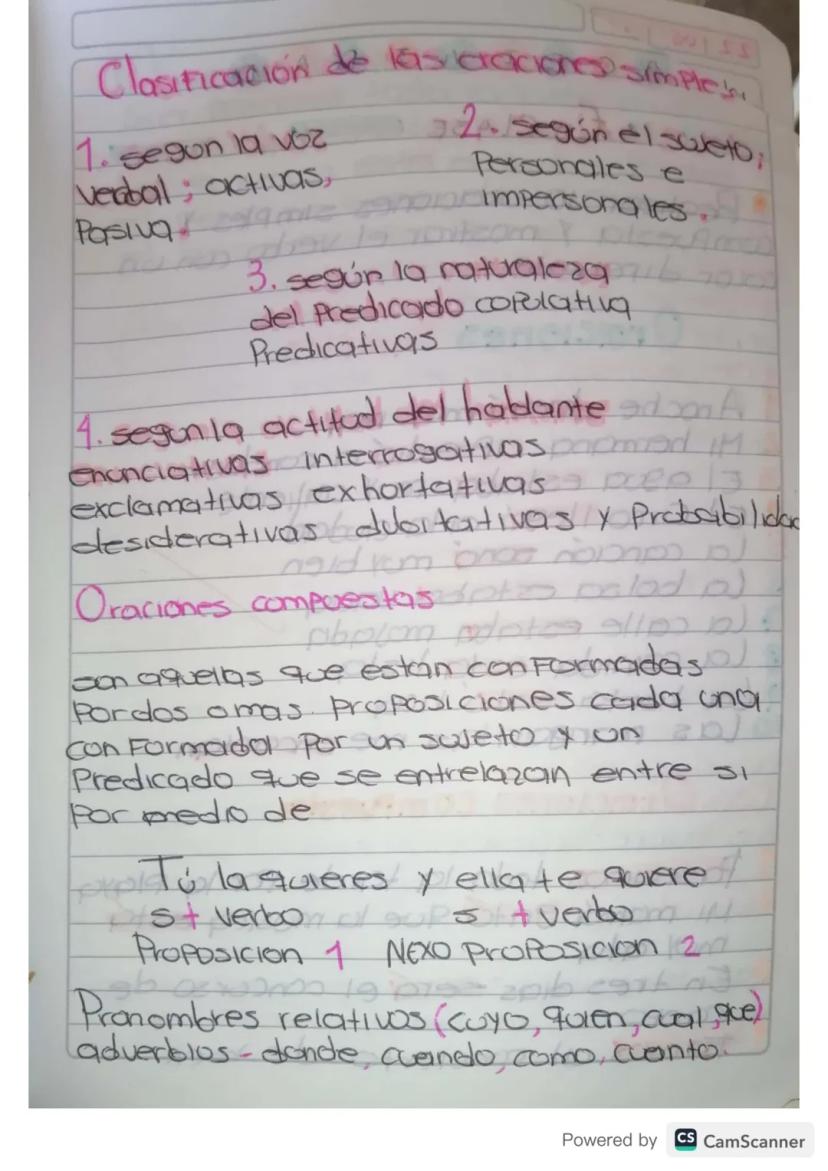 Clasificación de las oraciones simples.
1. segun la voz
verbal; activas,
Pasiva.
2. según el sujeto;
Personales e
impersonales.
3. según la naturaleza
del Predicado copulativa
Predicativas
4. segun la actitud del hablante
enunciativas interrogativas
exclamativas exhortativas
desiderativas dubitativas y Probabilidad
Oraciones compuestas
son aquellas que están conformadas
Por dos o mas proposiciones cada una
conformada por un sujeto y un
Predicado que se entrelazan entre si
Por medio de
Tú la quieres y ella te quiere
s + verbo s + verbo
Proposicion 1 Nexo proposicion 2
Pronombres relativos (cuyo, quien, cual, que)
adverbios - donde, cuando, como, cuanto.
Powered by CS CamScanner